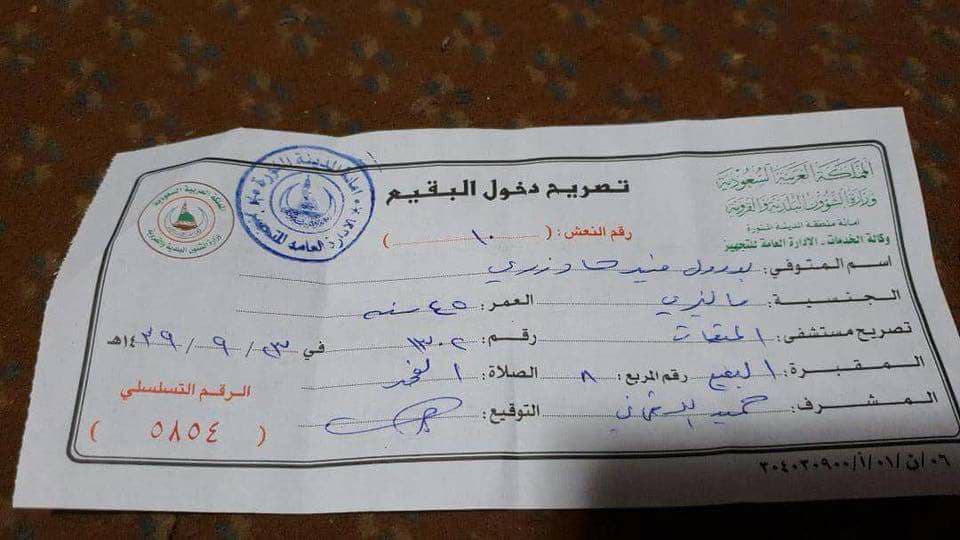 المملكة العربية السعودية
وزارة الشؤون البلدية والقروية
امانة منطقة المدينة المنورة
وكالة الخدمات - الادارة العامة للتجهيز
تصريح دخول البقيع
رقم النعش: ( ١٠ )
امانة المدينة المنورة
الادارة العامة للتجهيز
المملكة العربية السعودية
وزارة الشؤون البلدية والقروية
اسم المتوفي:
الجنسية: ماليزي العمر: ٤٥ سنه
تصريح مستشفى: الميقات رقم: ١٣٠٢ في ٣ / ٩ / ١٤٣٩هـ
المقبرة: البقيع رقم المربع: ٨ الصلاة: الفجر
المشرف: حميد التوقيع:
الرقم التسلسلي
( ٥٨٥٤ )
٠٦/ن/٠١/أ/٣٠٤٠٣٠٩٠٠